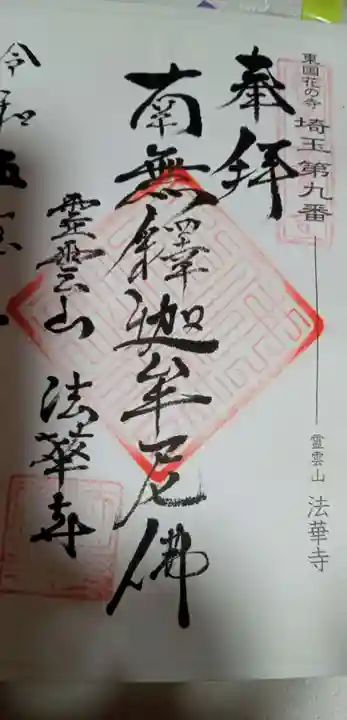 東国花の寺 埼玉第九番
霊雲山 法華寺
奉拝
南無釋迦牟尼佛
霊雲山 法華寺
令和五